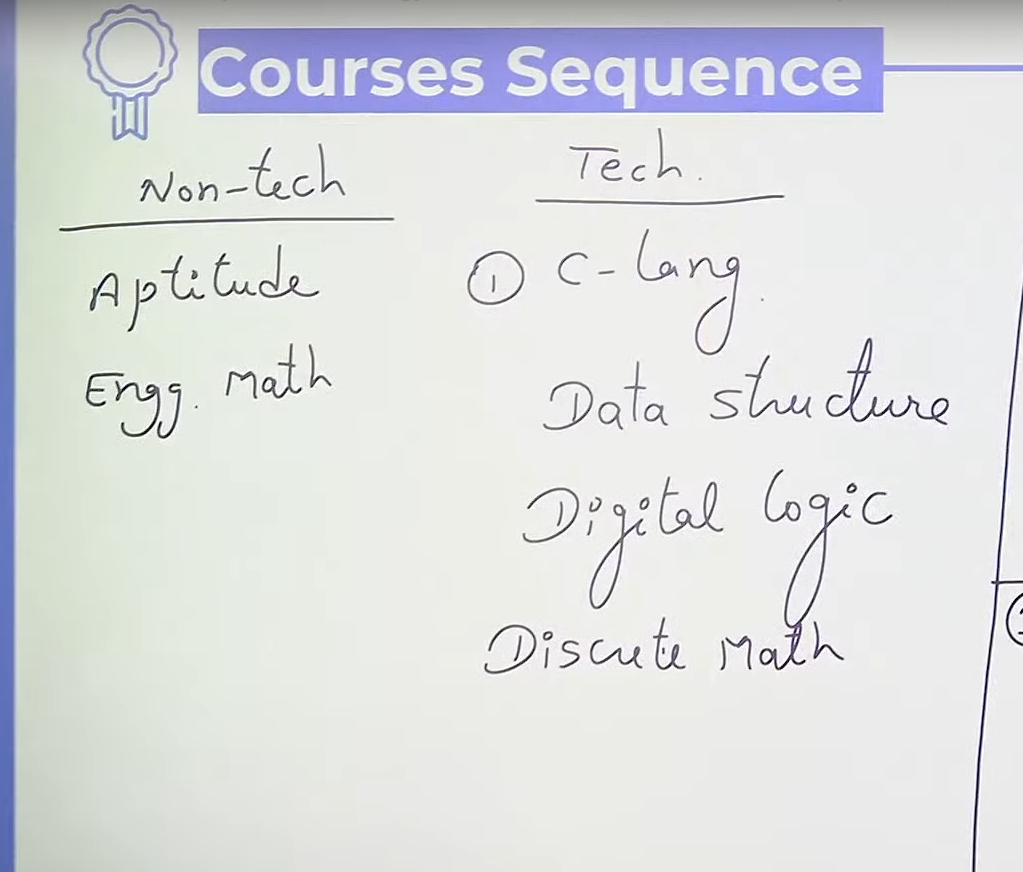 Courses Sequence
Non-tech
Aptitude
Engg. Math
Tech.
① C-lang.
Data structure
Digital logic
Discrete Math